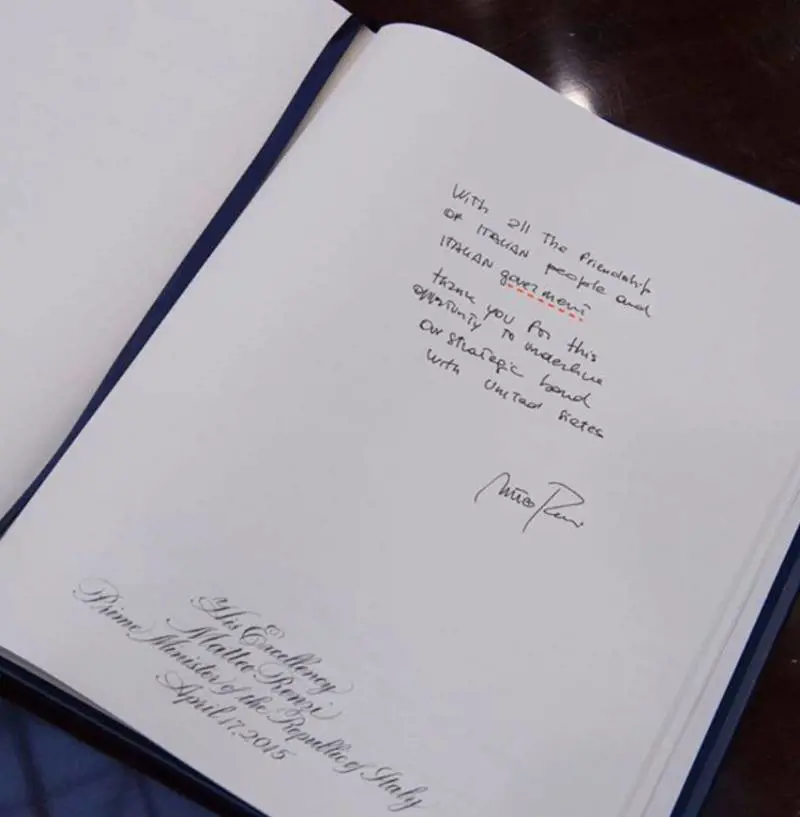 With all The Friendship
OF ITALIAN people and
ITALIAN goverment
thank you For this
opportunity To underline
our strategic bond
with United States
Matteo Renzi
His Excellency
Matteo Renzi
Prime Minister of the Republic of Italy
April 17, 2015